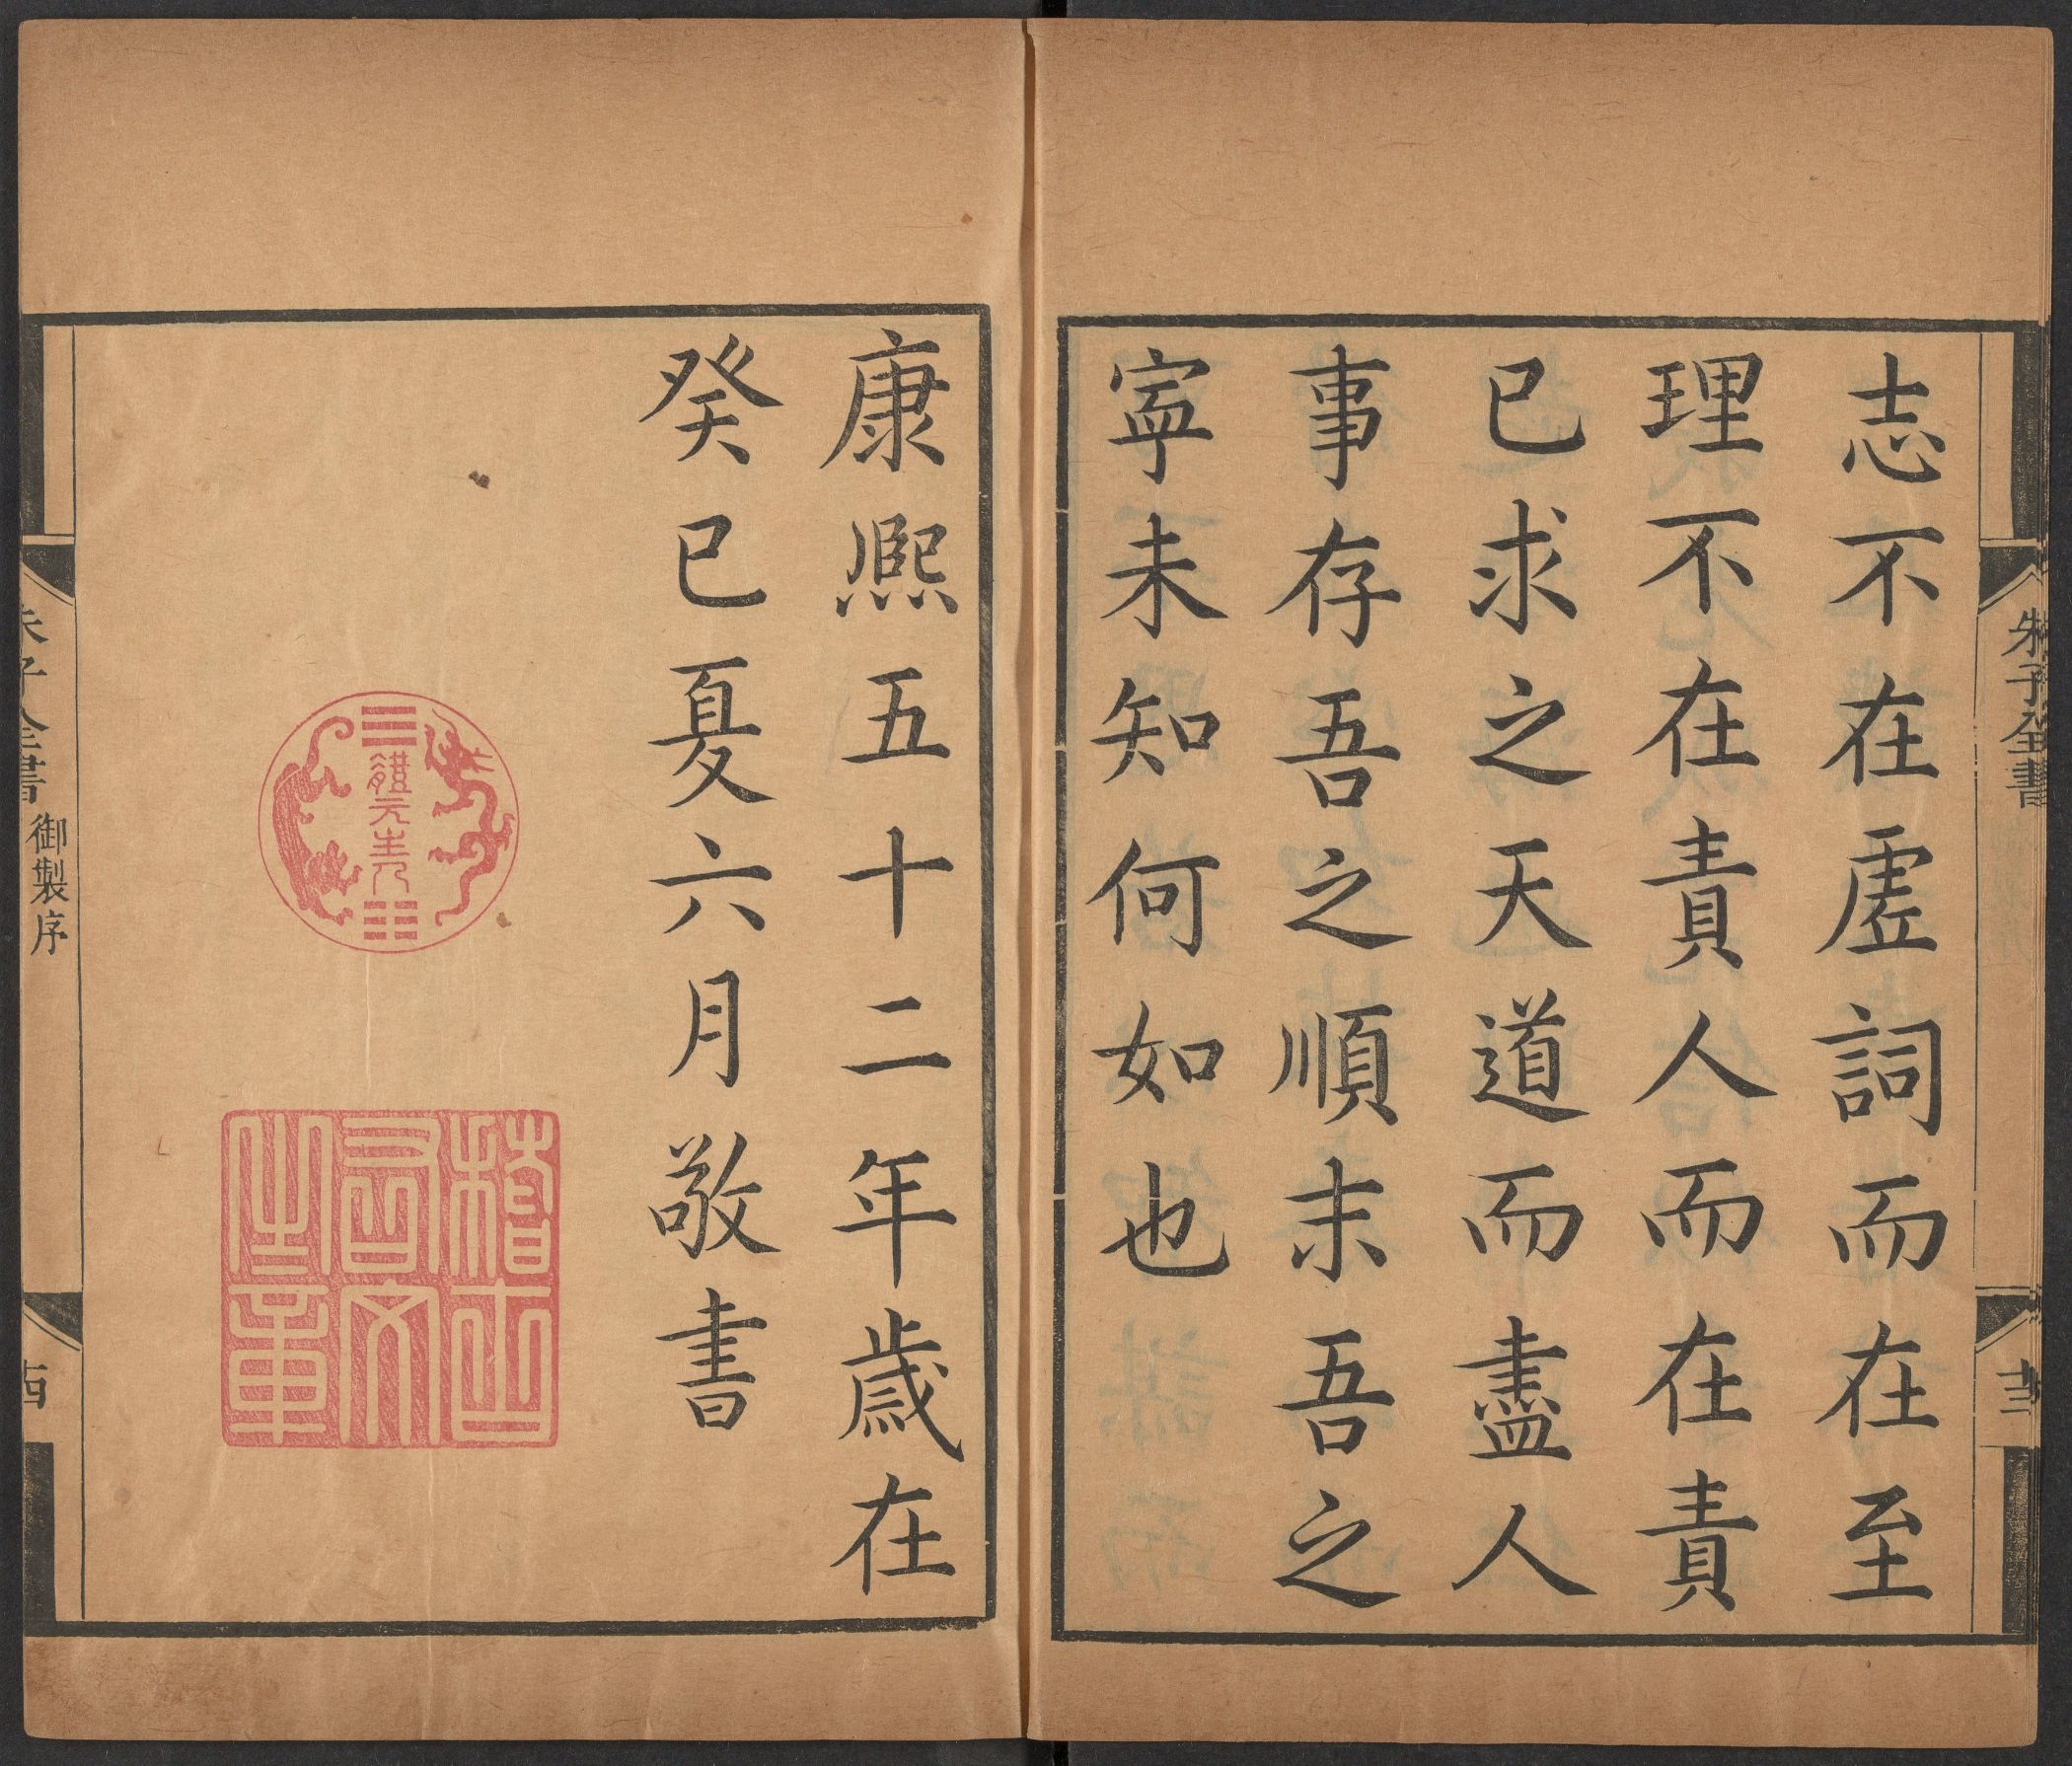 朱子全書
志不在虛詞而在至
理不在責人而在責
已求之天道而盡人
事存吾之順末吾之
寧未知何如也
康熙五十二年歲在
癸巳夏六月敬書
體元主人
稽古右文之章
朱子全書 御製序
十四